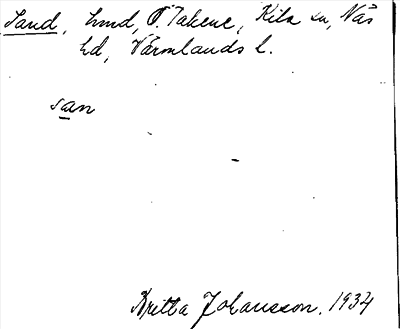 Sand, hmd, Ö. Takene, Kila sn, Näs
hd, Värmlands l.
san
Britta Johansson. 1934